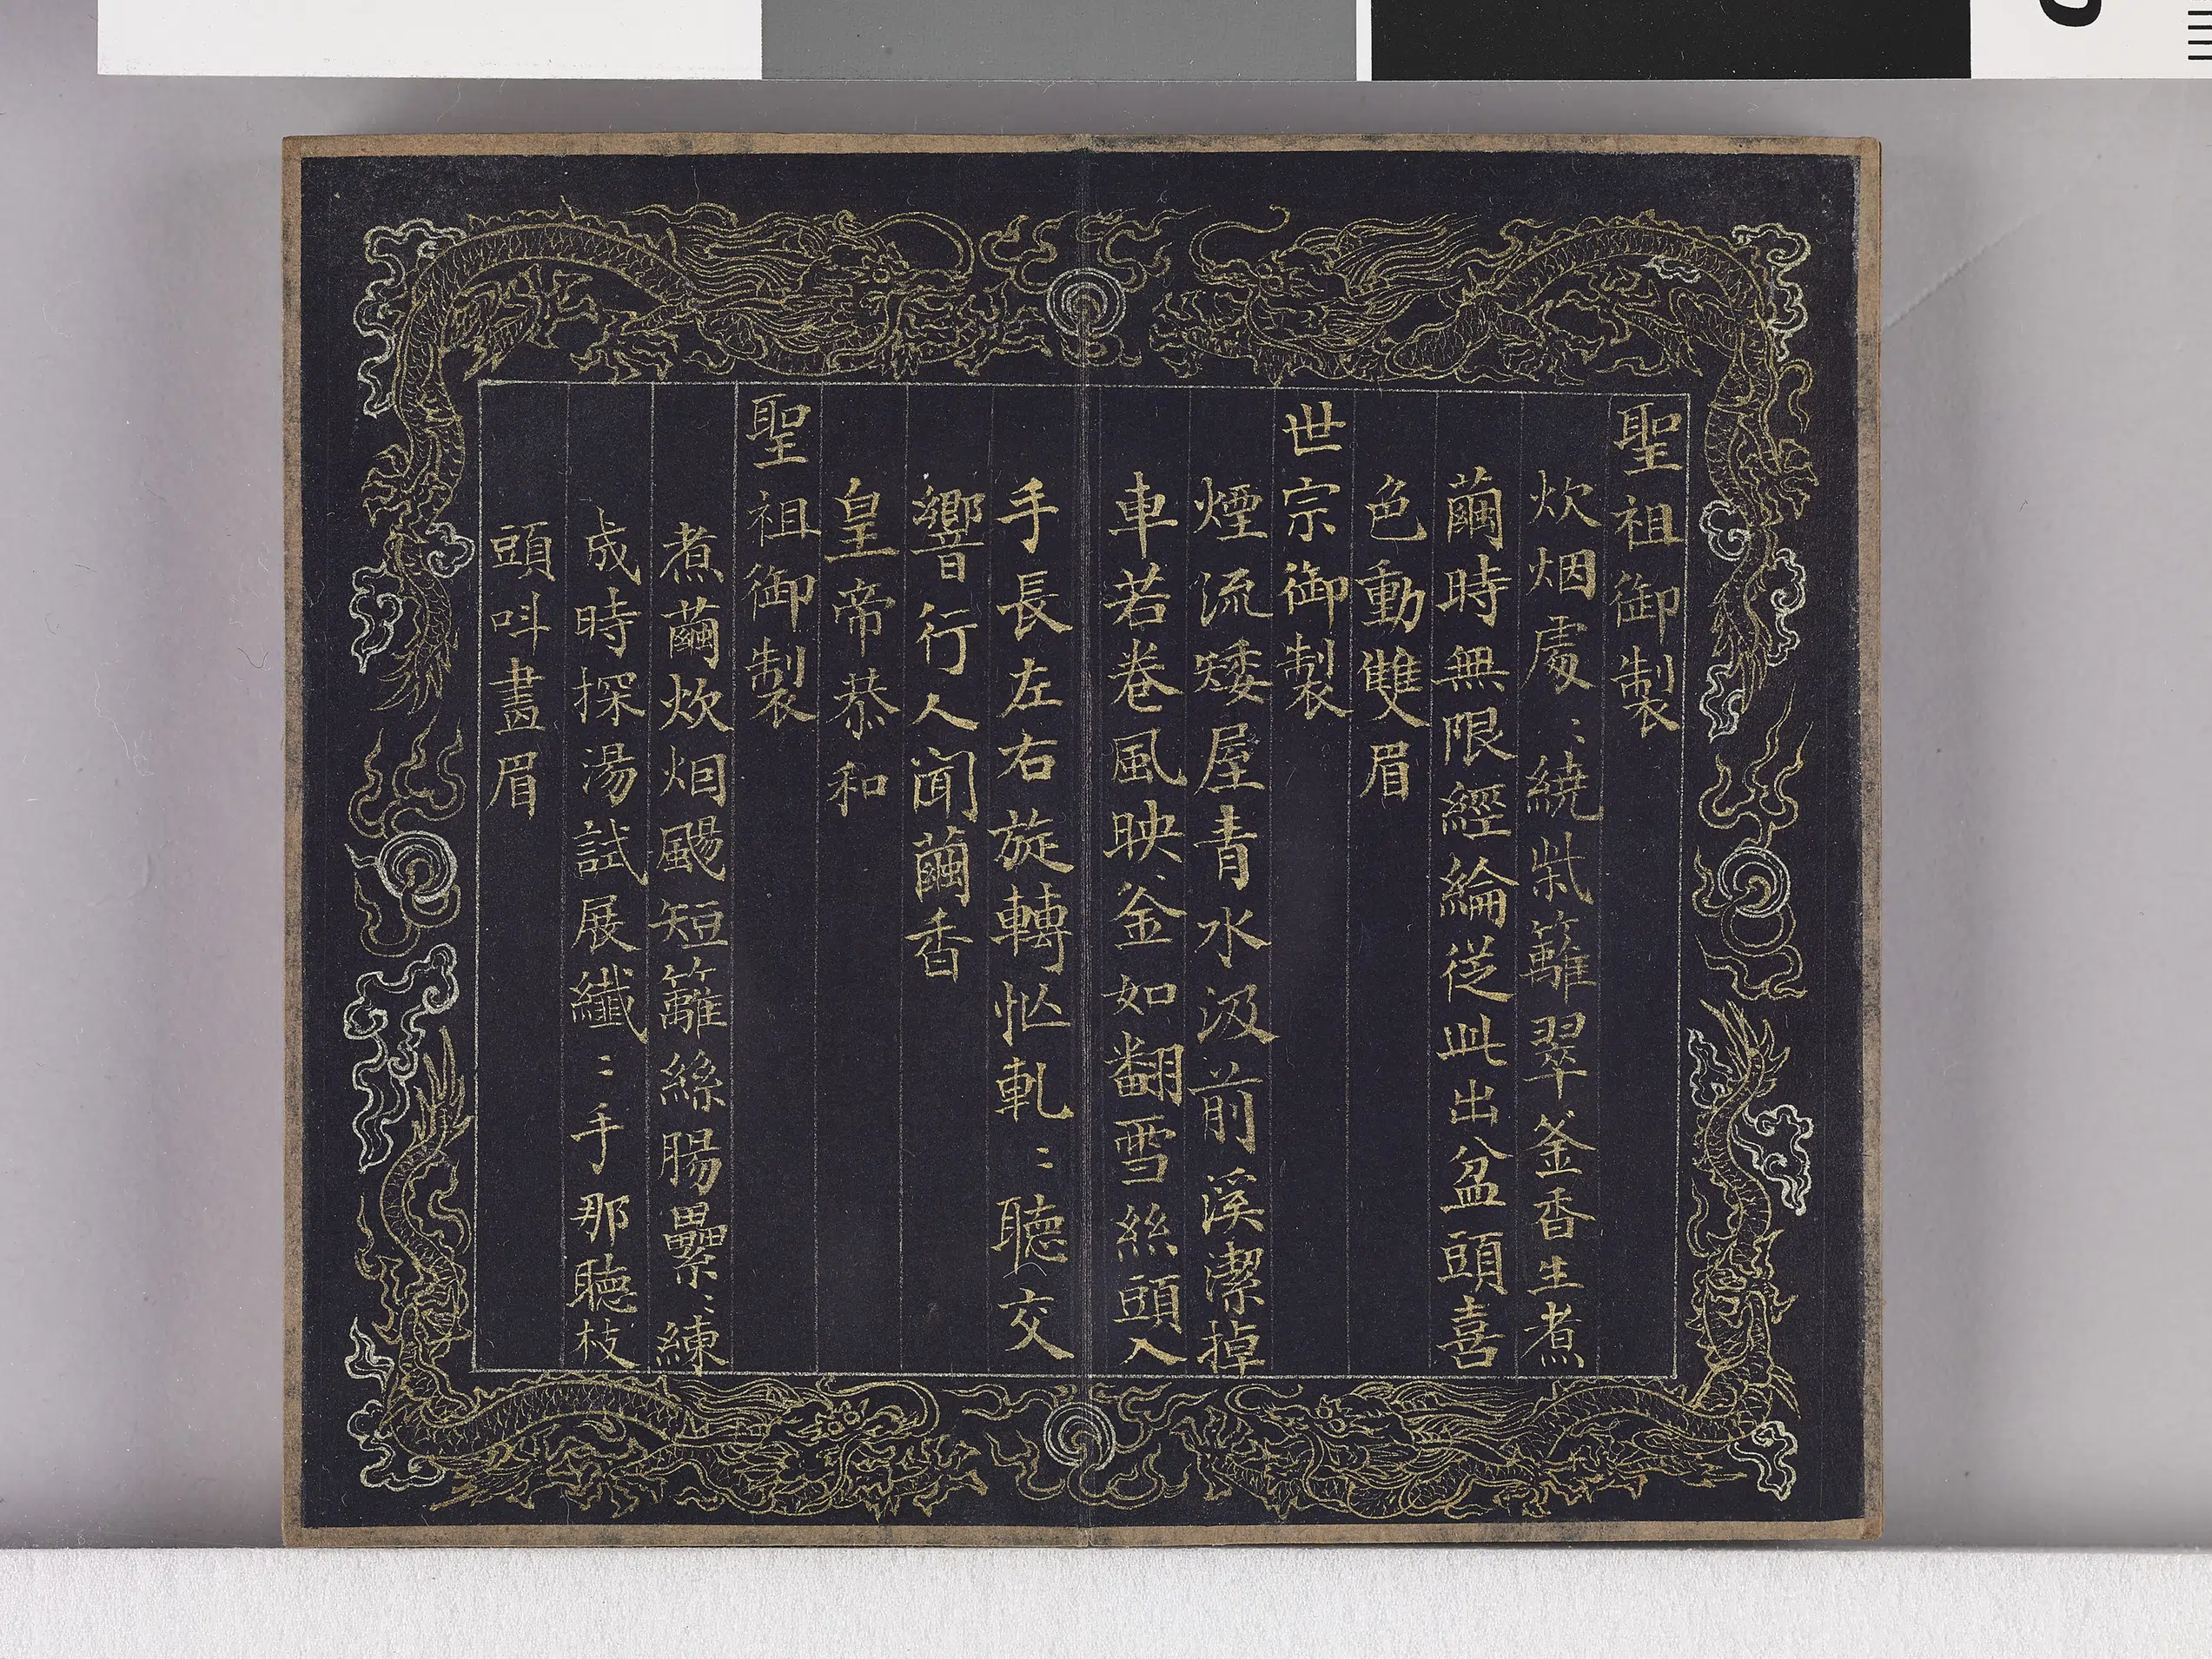 聖祖御製
炊烟處〻繞柴籬翠釜香生煮
繭時無限經綸從此出盆頭喜
色動雙眉
世宗御製
煙流矮屋青水汲前溪潔掉
車若卷風映釜如翻雪絲頭入
手長左右旋轉忙軋〻聽交
響行人聞繭香
皇帝恭和
聖祖御製
煮繭炊烟颺短籬絲腸纍〻練
成時探湯試展纖〻手那聽枝
頭呌畫眉